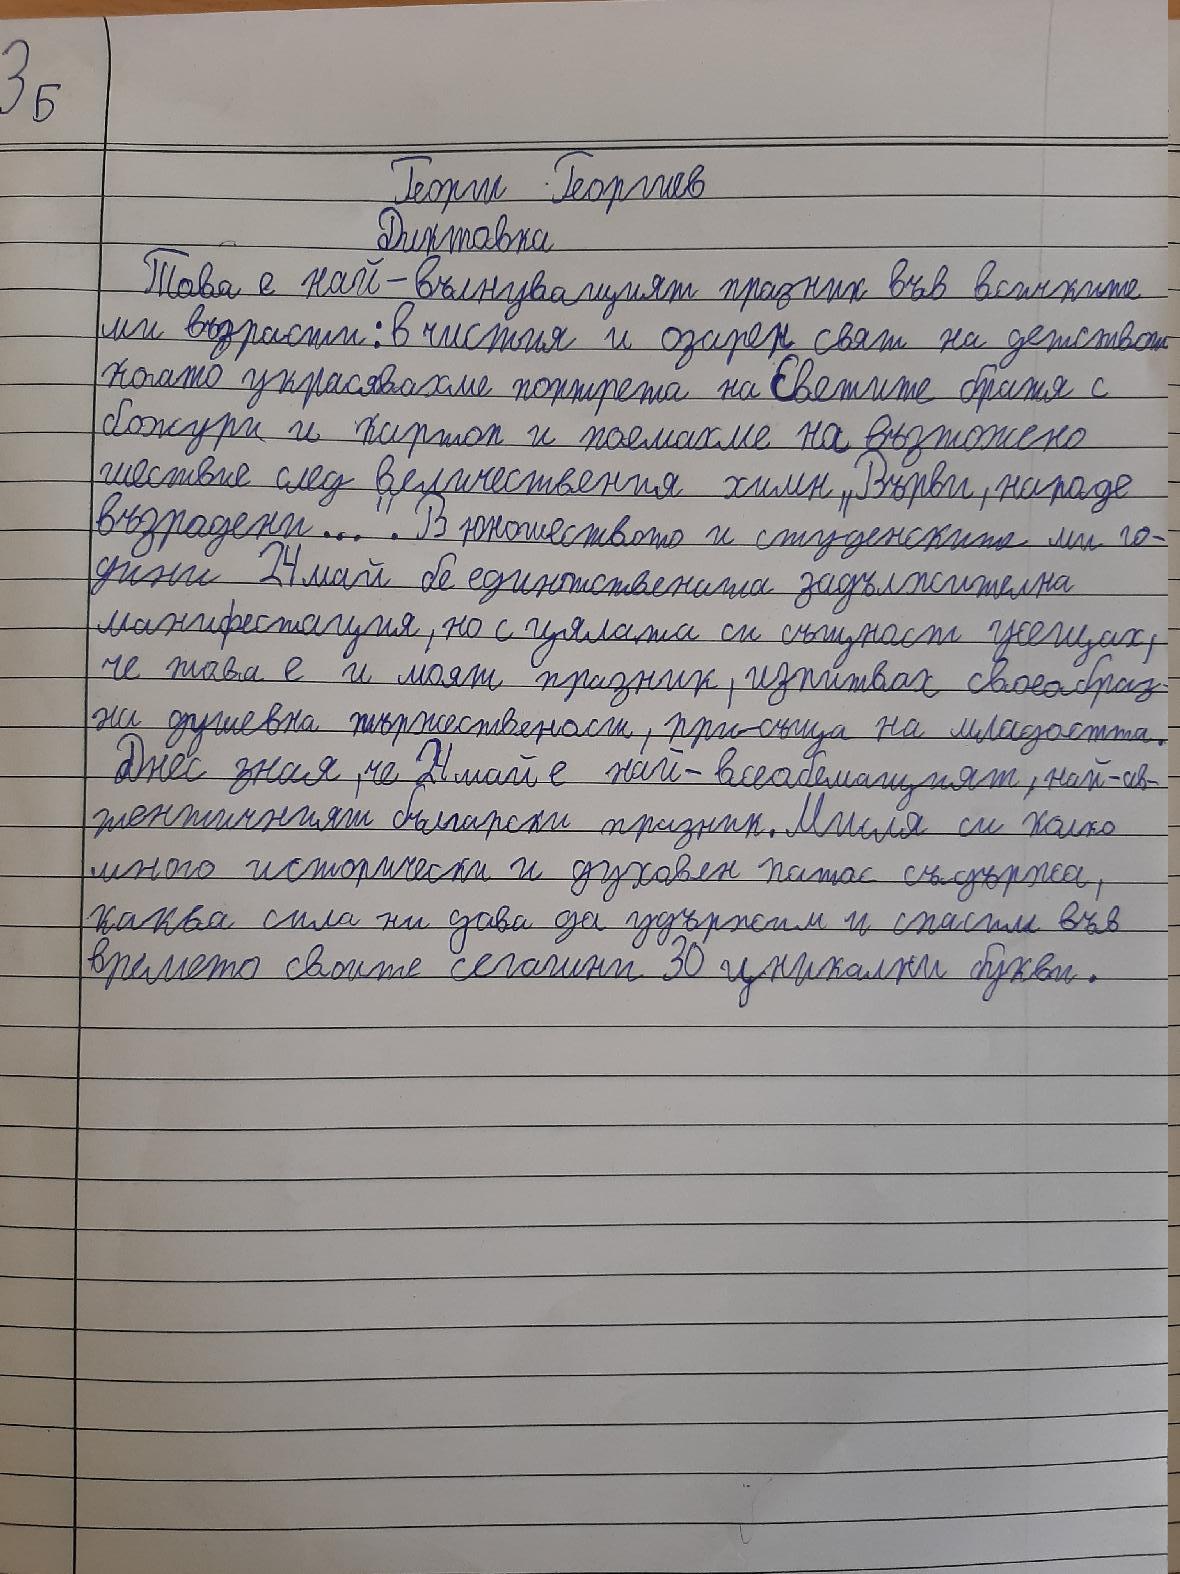 3б
Георги Георгиев
Диктовка
Това е най-вълнуващият празник във всичките
ми възрасти: в чистия и озарен свят на детството
когато украсявахме портрета на Светите братя с
божури и картоп и поемахме на възтожено
шествие след величествения химн „Върви, народе
възрадени...". В юношеството и студенските ми го-
дини 24 май бе единотствената задължителна
манифестация, но с цялата си същност усещах,
че това е и моят празник, изпитвах своеобраз-
на душевна тържественост, при-съща на младостта.
Днес зная, че 24 май е най-всеобемащият, най-ав-
тентичният български празник. Мисля си колко
много исторически и духовен патос съдържа,
каква сила ни дава да удържим и спасим във
времето своите сегашни 30 уникални букви.